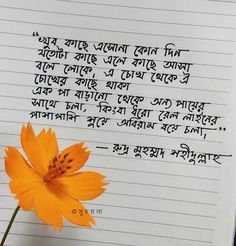 “খুব কাছে এসোনা কোন দিন
যতোটা কাছে এলে কাছে আসা
বলে লোকে, এ চোখ থেকে ঐ
চোখের কাছে থাকা
এক পা বাড়ানো থেকে অন্য পায়ের
সাথে চলা, কিংবা ধরো রেল লাইনের
পাশাপাশি শুয়ে অবিরাম বয়ে চলা,”
— রুদ্র মুহম্মদ শহীদুল্লাহ